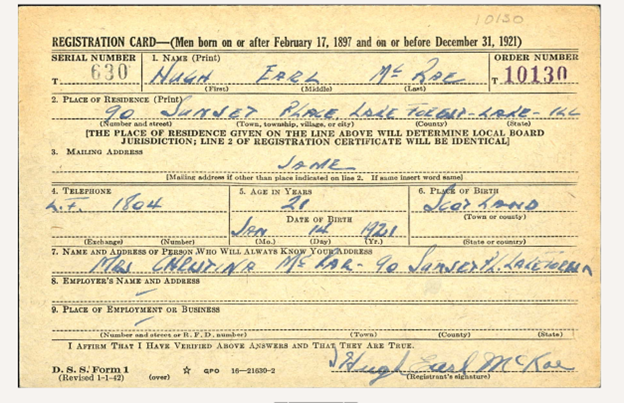 10130
REGISTRATION CARD—(Men born on or after February 17, 1897 and on or before December 31, 1921)
SERIAL NUMBER 1. NAME (Print) ORDER NUMBER
T 630 HUGH EARL Mc RAE T 10130
(First) (Middle) (Last)
2. PLACE OF RESIDENCE (Print)
90 SUNSET PLACE LAKE FOREST - LAKE - ILL
(Number and street) (Town, township, village, or city) (County) (State)
[THE PLACE OF RESIDENCE GIVEN ON THE LINE ABOVE WILL DETERMINE LOCAL BOARD
JURISDICTION; LINE 2 OF REGISTRATION CERTIFICATE WILL BE IDENTICAL]
3. MAILING ADDRESS
SAME
[Mailing address if other than place indicated on line 2. If same insert word same]
4. TELEPHONE 5. AGE IN YEARS 6. PLACE OF BIRTH
L.F. 1804 21 SCOTLAND
DATE OF BIRTH (Town or county)
JAN 14 1921
(Exchange) (Number) (Mo.) (Day) (Yr.) (State or country)
7. NAME AND ADDRESS OF PERSON WHO WILL ALWAYS KNOW YOUR ADDRESS
MRS CHRISTINA Mc RAE - 90 SUNSET PL. LAKE FOREST
8. EMPLOYER'S NAME AND ADDRESS
9. PLACE OF EMPLOYMENT OR BUSINESS
(Number and street or R. F. D. number) (Town) (County) (State)
I AFFIRM THAT I HAVE VERIFIED ABOVE ANSWERS AND THAT THEY ARE TRUE.
D. S. S. Form 1
(Revised 1-1-42) (over) ☆ GPO 16—21630-2 Hugh Earl McRae
(Registrant's signature)